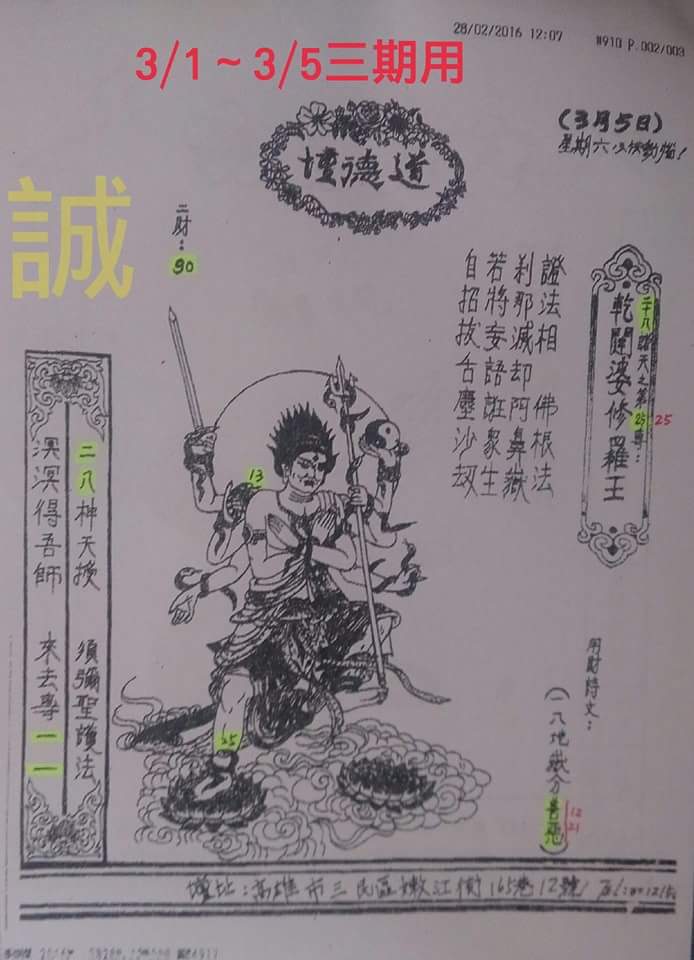 28/02/2016 12:07 #910 P.002/003
3/1~3/5三期用
(3月5日)
道德壇
誠
二財:
90
二十八諸天之第25尊:
25
乾闥婆修羅王
證法相 佛根法
剎那滅却阿鼻嶽
若將妄語誑眾生
自招拔舌塵沙劫
13
25
用財詩文:
(一八地嶽分善惡)
12
21
二八神天揆 須彌聖讚法
溟溟得吾師 來去專一一
壇址:高雄市三民區嫩江街165巷12號